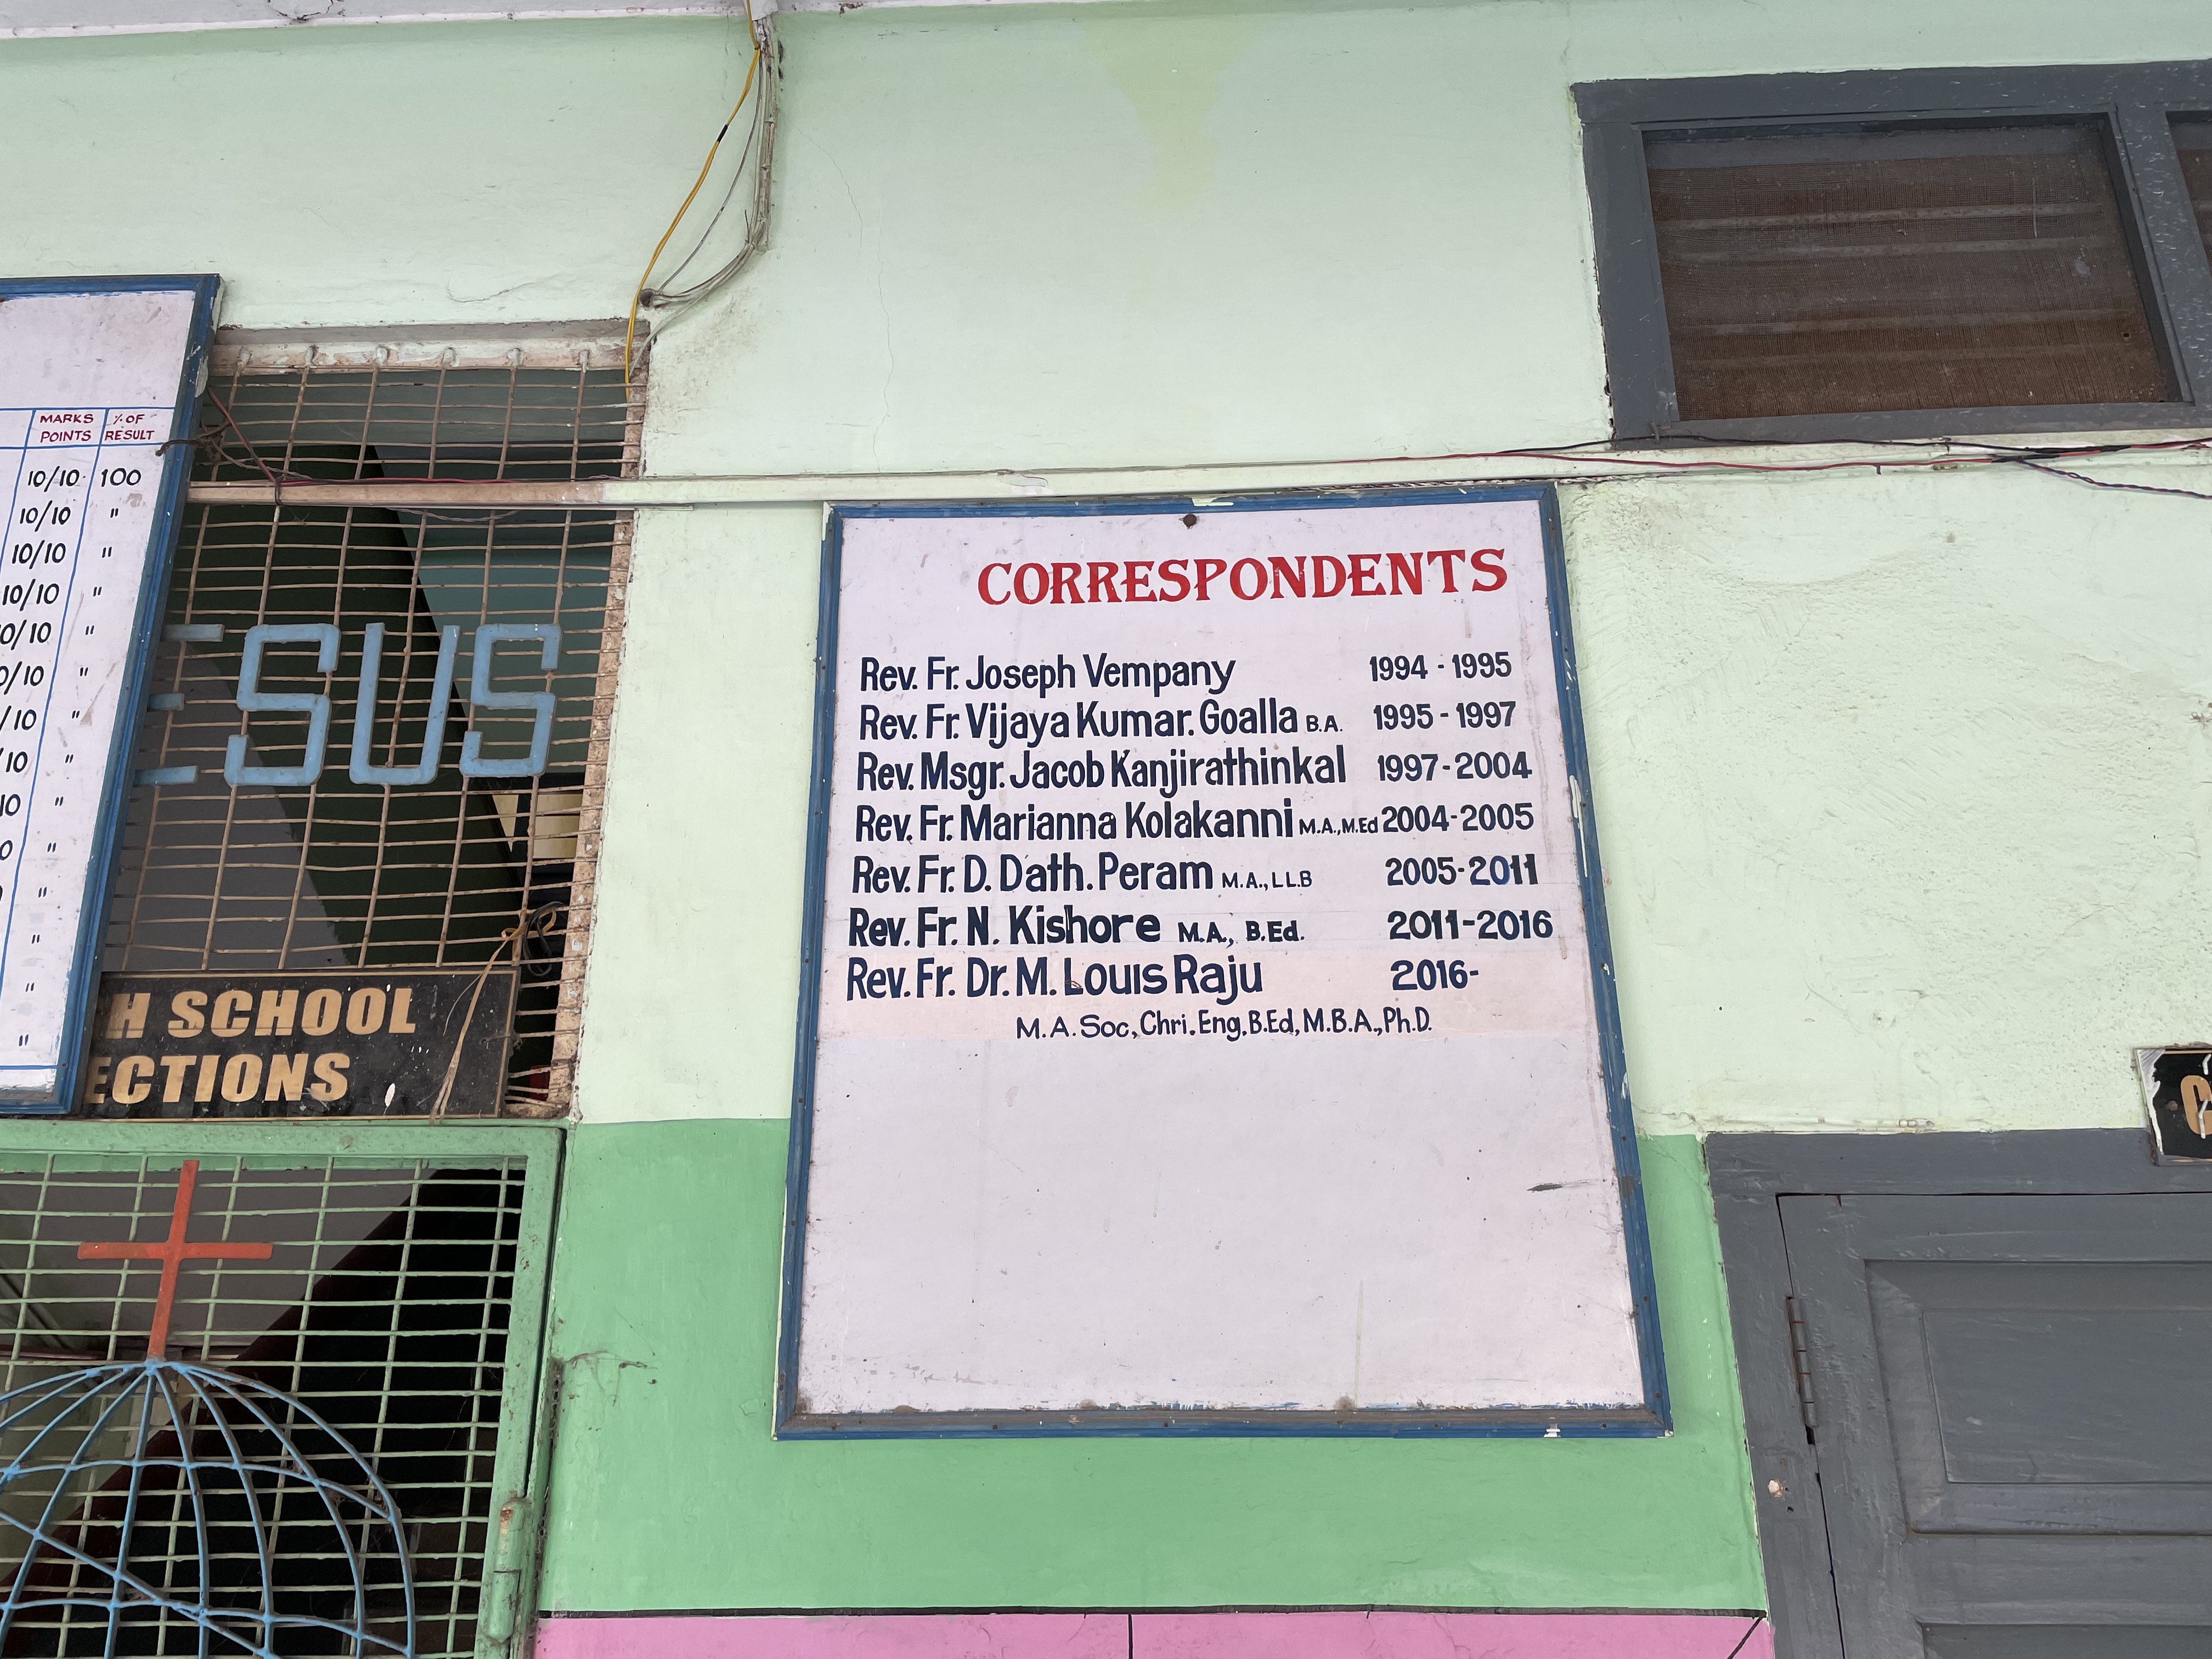 MARKS POINTS
% OF RESULT
10/10 100
10/10 "
10/10 "
10/10 "
0/10 "
0/10 "
/10 "
/10 "
10 "
0 "
"
"
"
"
ESUS
H SCHOOL
ECTIONS
CORRESPONDENTS
Rev. Fr. Joseph Vempany 1994 - 1995
Rev. Fr. Vijaya Kumar. Goalla B.A. 1995 - 1997
Rev. Msgr. Jacob Kanjirathinkal 1997-2004
Rev. Fr. Marianna Kolakanni M.A.,M.Ed 2004-2005
Rev. Fr. D. Dath. Peram M.A., LL.B 2005-2011
Rev. Fr. N. Kishore M.A., B.Ed. 2011-2016
Rev. Fr. Dr. M. Louis Raju 2016-
M.A. Soc, Chri. Eng, B.Ed, M.B.A., Ph.D.